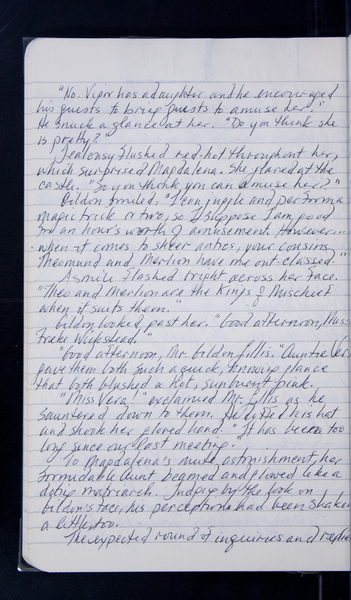 "No. Viper has a daughter and he encouraged
his guests to bring guests to amuse her."
He snuck a glance at her. "Do you think she
is pretty?"
Jealousy flushed red-hot throughout her,
which surprised Magdalena. She glared at the
castle. "So you think you can amuse her?"
Gildon smiled. "I can juggle and perform a
magic trick or two, so I suppose I am good
for an hour's worth of amusement. However...
when it comes to sheer antics, your cousins
Theomund and Merlion have me out classed."
A smile flashed bright across her face.
"Theo and Merlion are the Kings of Mischief
when it suits them."
Gildon looked past her. "Good afternoon, Miss
Frake Wickstead."
"Good afternoon, Mr. Gildon Gillis." Auntie Vera
gave them both such a quick, knowing glance
that both blushed a hot, sunburnt pink.
"Miss Vera!" exclaimed Mr. Gillis as he
sauntered down to them. He doffed his hat
and shook her gloved hand. "It has been too
long since our last meeting."
To Magdalena's mute astonishment, her
formidable Aunt beamed and glowed like a
doting matriarch. Judging by the look on
Gildon's face, his perceptions had been shaken
a little too.
The expected round of inquiries and